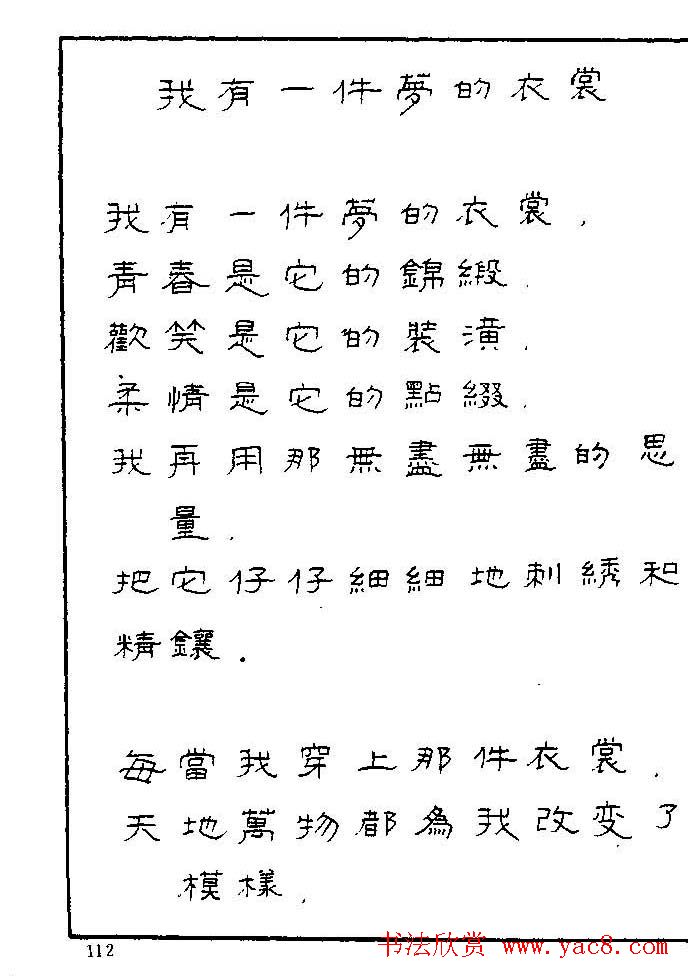 我有一件夢的衣裳
我有一件夢的衣裳.
青春是它的錦緞.
歡笑是它的裝潢.
柔情是它的點綴.
我再用那無盡無盡的思
量.
把它仔仔細細地刺綉和
精鑲.
每當我穿上那件衣裳.
天地萬物都為我改变了
模樣.
112
书法欣赏 www.yac8.com